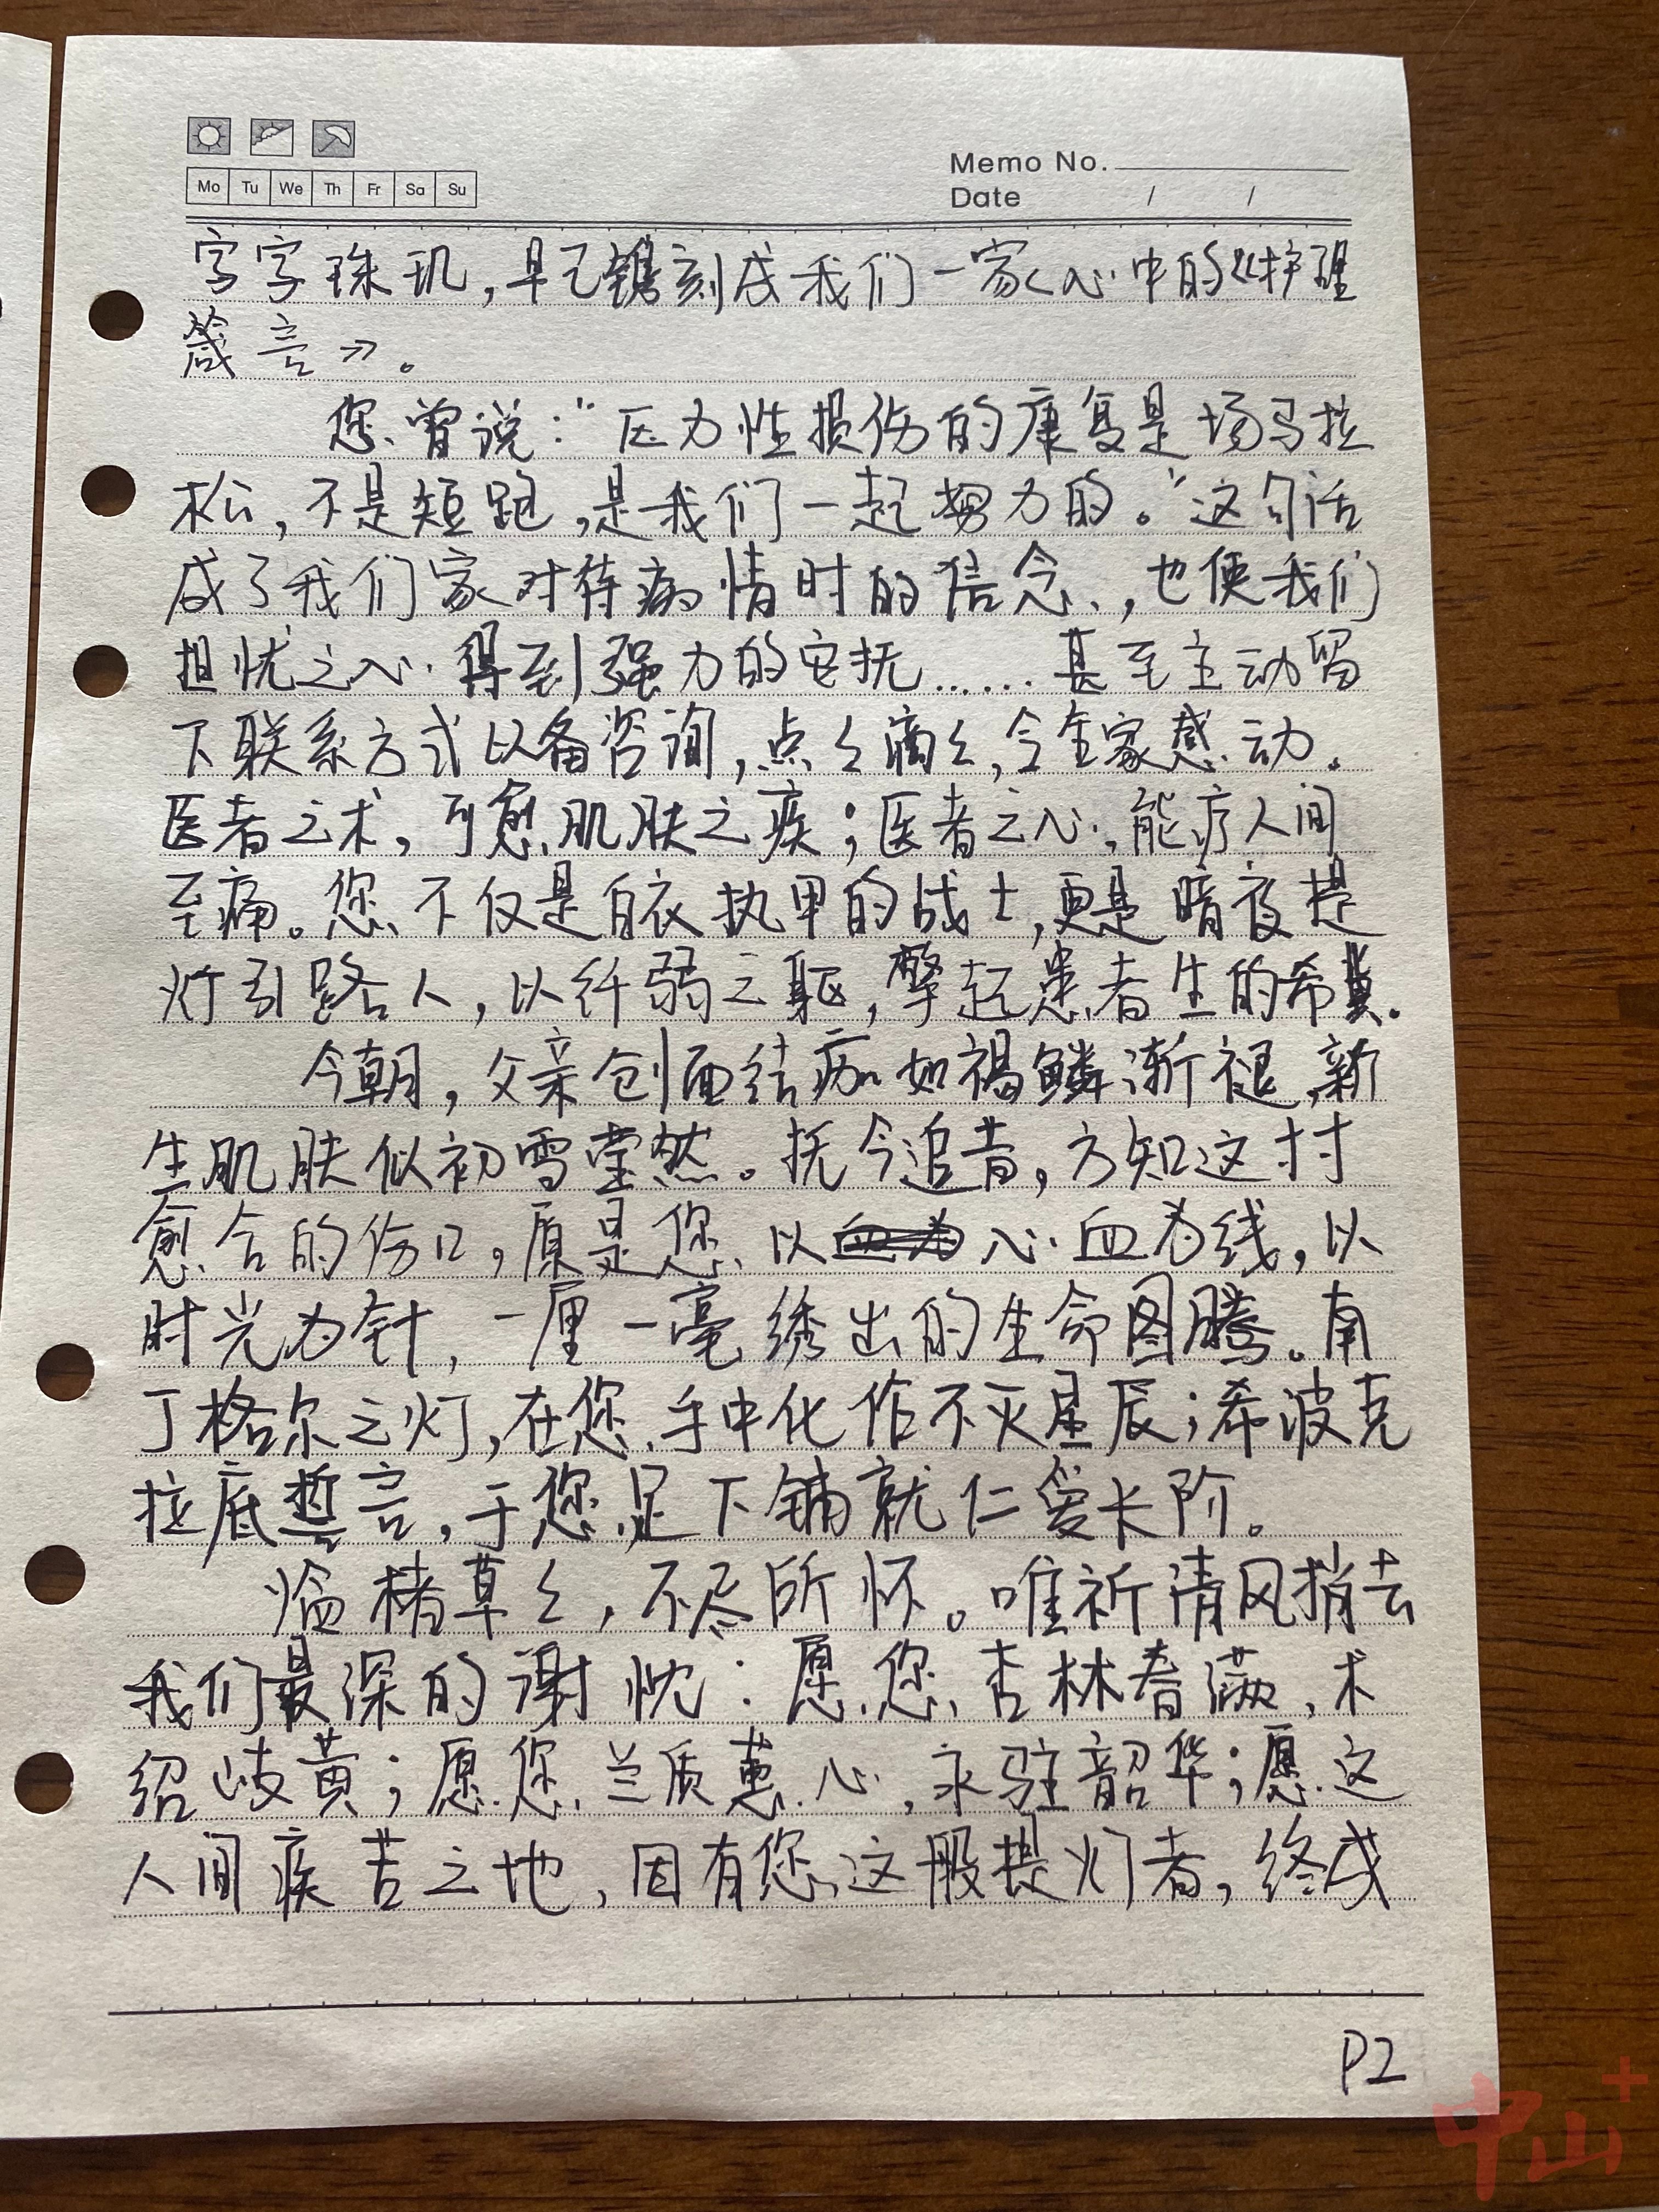 Memo No.
Mo Tu We Th Fr Sa Su
Date / /
字字珠玑，早已镌刻成我们一家心中的《护理
箴言》。
您曾说：“压力性损伤的康复是场马拉
松，不是短跑，是我们一起努力的。”这句话
成了我们家对待病情时的信念，也使我们
担忧之心得到强力的安抚……甚至主动留
下联系方式以备咨询，点点滴滴，令全家感动。
医者之术，可愈肌肤之疾；医者之心，能疗人间
至痛。您不仅是白衣执甲的战士，更是暗夜提
灯引路人，以纤弱之躯，擎起患者生的希冀。
今朝，父亲创面结痂如褐鳞渐褪，新
生肌肤似初雪莹然。抚今追昔，方知这寸寸
愈合的伤口，原是您以心血为线，以
时光为针，一厘一毫绣出的生命图腾。南
丁格尔之灯，在您手中化作不灭星辰；希波克
拉底誓言，于您足下铺就仁爱长阶。
临楮草草，不尽所怀。唯祈清风捎去
我们最深的谢忱：愿您杏林春满，术
绍岐黄；愿您兰质蕙心，永驻韶华；愿这
人间疾苦之地，因有您这般提灯者，终成
P2
中山+